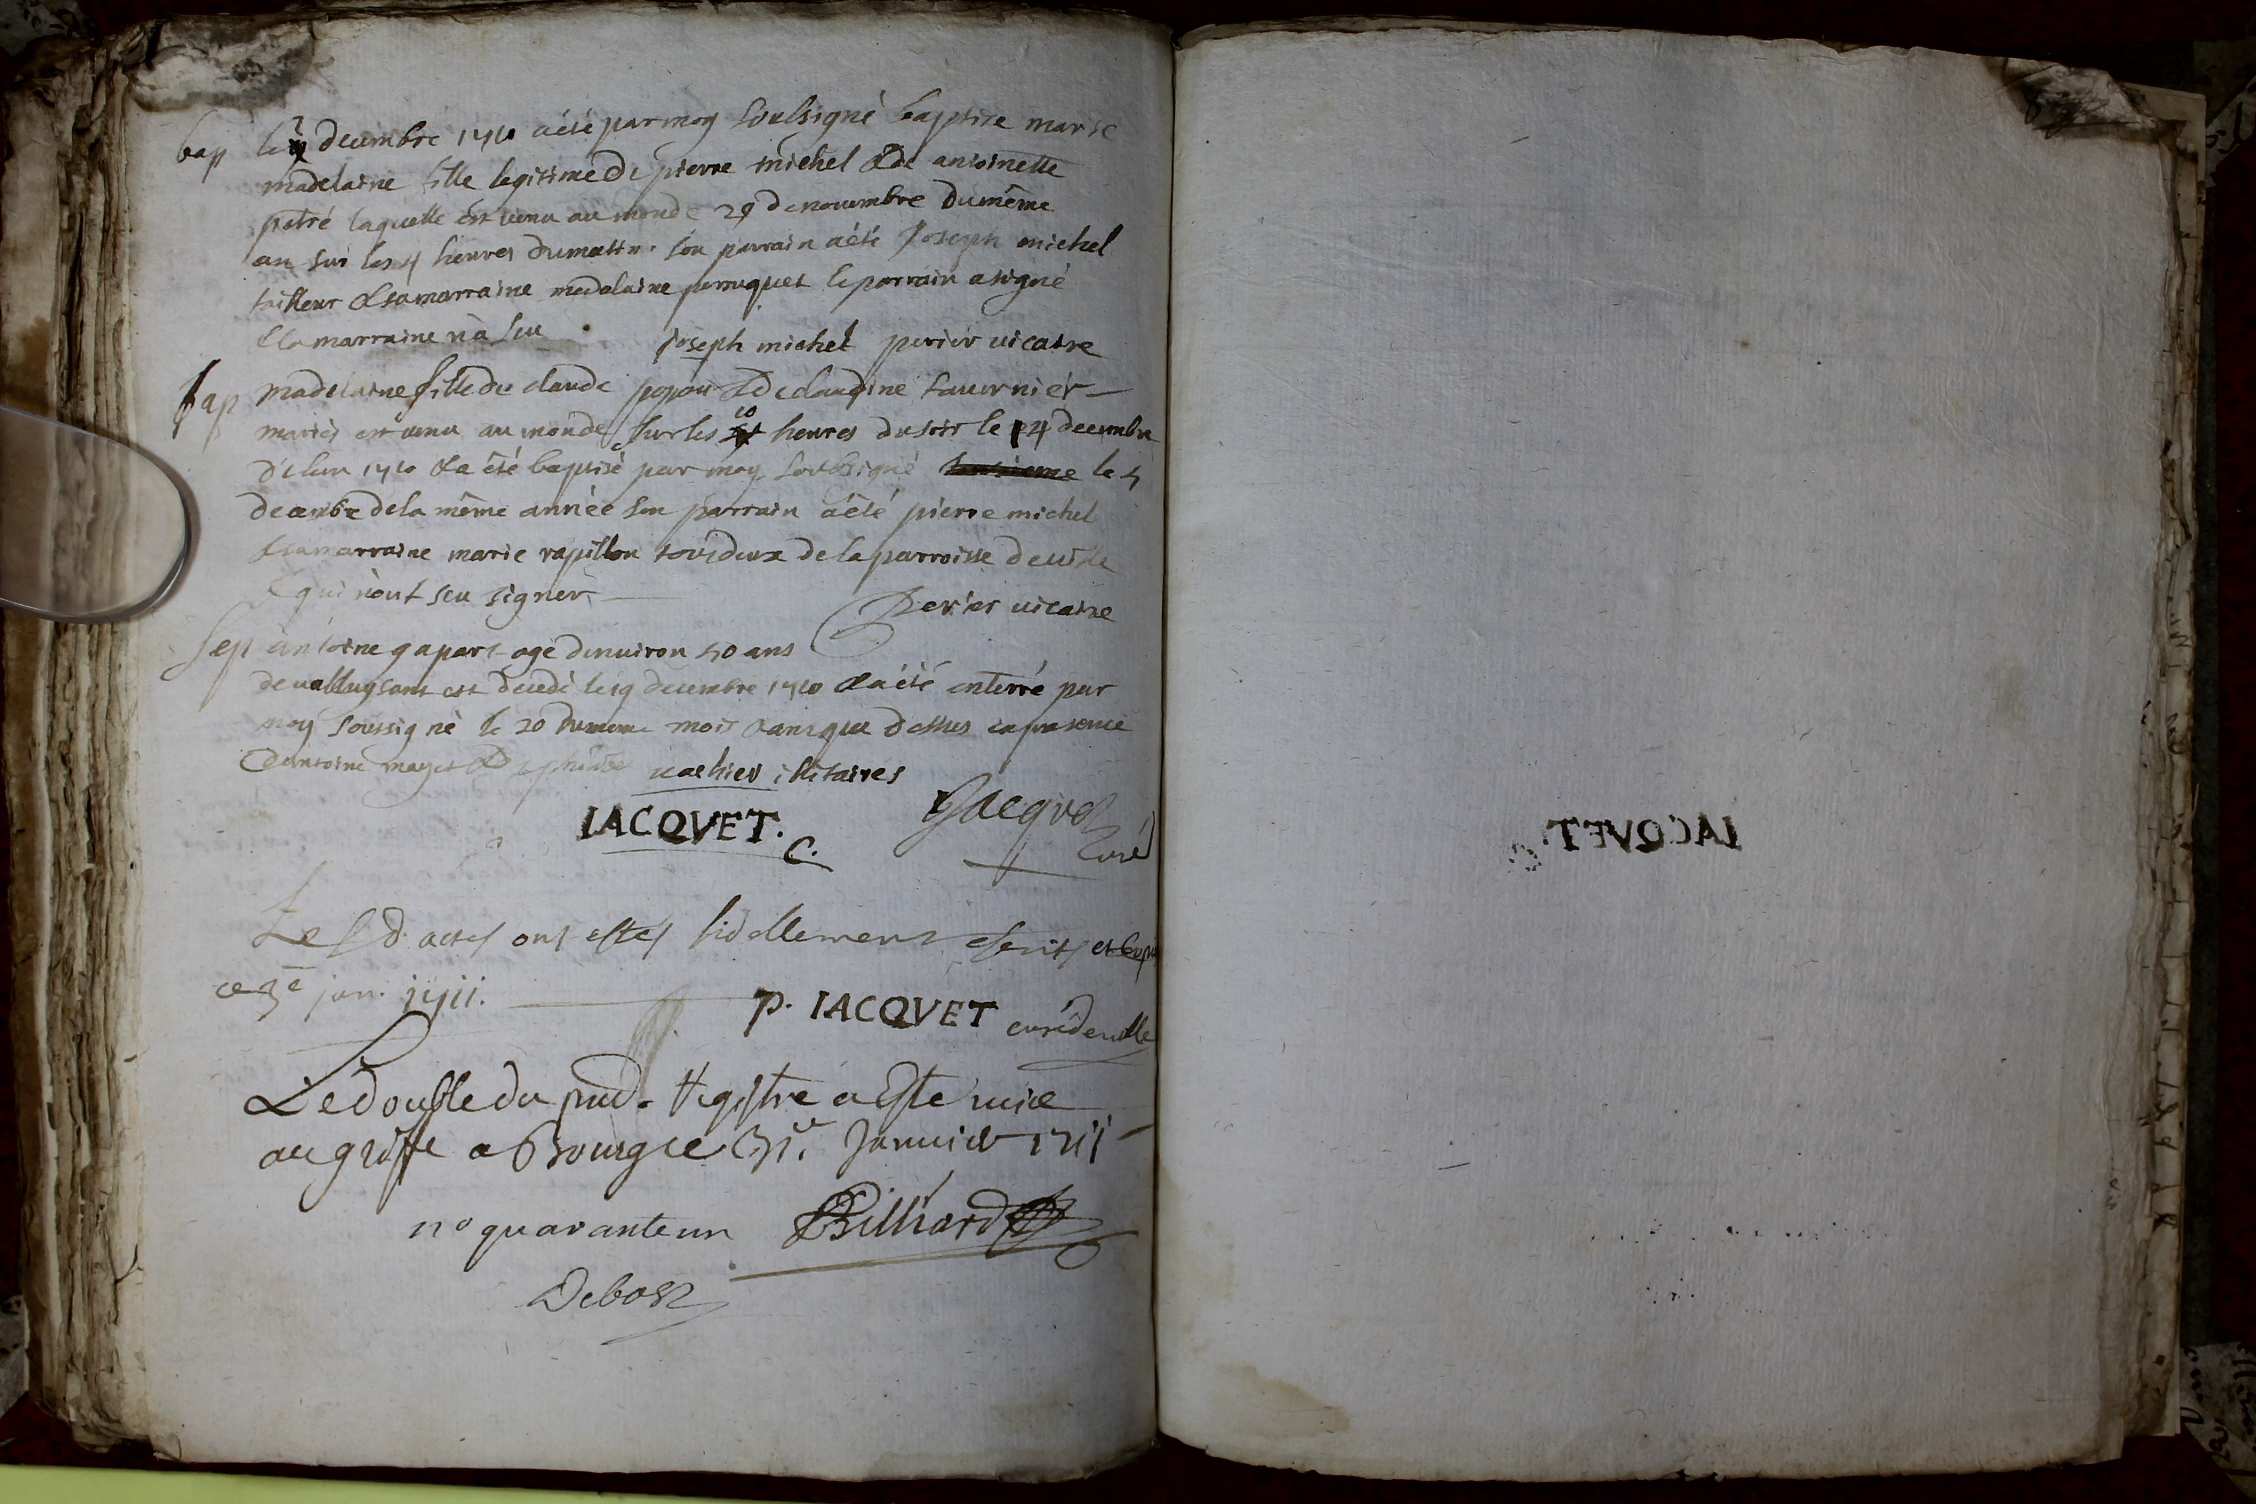 bap le 2 decembre 1710 a été par moy soubsigné baptise marie
madelaine fille legitime de pierre michel & de antoinette
petré laquelle est venu au monde 29 de novembre du même
an sur les 4 heures du matin. son parrain a été Joseph michel
tailleur & sa marraine madelaine perruquet le parrain a signé
& la marraine n'a seu
Joseph michel perier vicaire
bap madelaine fille de claude popon & de claudine tavernier
mariés est venu au monde sur les 10 heures du soir le 4 decembre
de l'an 1710 & a été baptisé par moy soubsigné le 5
decembre de la même année son parrain a été pierre michel
& sa marraine marie rapillon tous deux de la parroisse de
& qui n'ont seu signer
Perier vicaire
sep antoine gapart agé d'environ 50 ans
de est decedé le 19 decembre 1710 & a été enterré par
moy soussigné le 20 du meme mois & an que dessus en presence
d'antoine & de vachier illitaires
IACQVET. C.
Jacquet
Curé
Les d. actes ont estes fidellement escrits
ce 3e jan. 1711.
P. IACQVET curé de
Le double du pnt. Registre a Esté mis
au greffe a Bourg ce 31e. Janvier 1711
no quarante un Billiard
Debost
IACQVET.